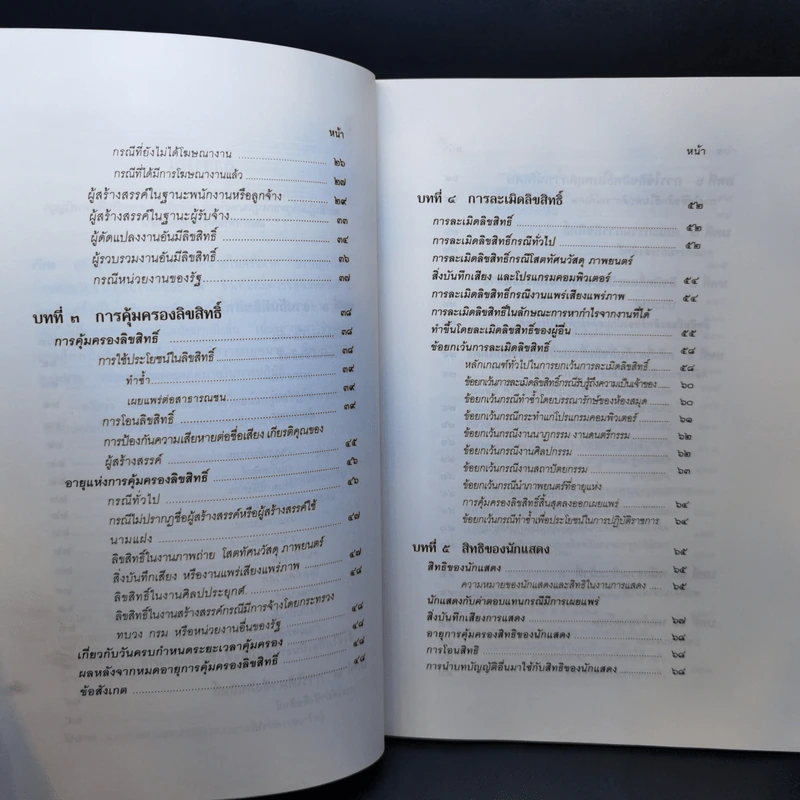 หน้า
กรณีที่ยังไม่ได้โฆษณางาน ๒๖
กรณีที่ได้มีการโฆษณางานแล้ว ๒๗
ผู้สร้างสรรค์ในฐานะพนักงานหรือลูกจ้าง ๒๙
ผู้สร้างสรรค์ในฐานะผู้รับจ้าง ๓๓
ผู้ดัดแปลงงานอันมีลิขสิทธิ์ ๓๔
ผู้รวบรวมงานอันมีลิขสิทธิ์ ๓๖
กรณีหน่วยงานของรัฐ ๓๗
บทที่ ๓ การคุ้มครองลิขสิทธิ์ ๓๘
การคุ้มครองลิขสิทธิ์ ๓๘
การใช้ประโยชน์ในลิขสิทธิ์ ๓๘
ทำซ้ำ ๓๙
เผยแพร่ต่อสาธารณชน ๓๙
การโอนลิขสิทธิ์ ๓๙
การป้องกันความเสียหายต่อชื่อเสียง เกียรติคุณของ
ผู้สร้างสรรค์ ๔๕
อายุแห่งการคุ้มครองลิขสิทธิ์ ๔๖
กรณีทั่วไป ๔๖
กรณีไม่ปรากฏชื่อผู้สร้างสรรค์หรือผู้สร้างสรรค์ใช้
นามแฝง ๔๗
ลิขสิทธิ์ในงานภาพถ่าย โสตทัศนวัสดุ ภาพยนตร์
สิ่งบันทึกเสียง หรืองานแพร่เสียงแพร่ภาพ ๔๗
ลิขสิทธิ์ในงานศิลปประยุกต์ ๔๘
ลิขสิทธิ์ในงานสร้างสรรค์กรณีมีการจ้างโดยกระทรวง
ทบวง กรม หรือหน่วยงานอื่นของรัฐ ๔๘
เกี่ยวกับวันครบกำหนดระยะเวลาคุ้มครอง ๔๘
ผลหลังจากหมดอายุการคุ้มครองลิขสิทธิ์ ๔๘
ข้อสังเกต ๔๘
หน้า
บทที่ ๔ การละเมิดลิขสิทธิ์ ๕๒
การละเมิดลิขสิทธิ์ ๕๒
การละเมิดลิขสิทธิ์กรณีทั่วไป ๕๒
การละเมิดลิขสิทธิ์กรณีโสตทัศนวัสดุ ภาพยนตร์
สิ่งบันทึกเสียง และโปรแกรมคอมพิวเตอร์ ๕๔
การละเมิดลิขสิทธิ์กรณีงานแพร่เสียงแพร่ภาพ
การละเมิดลิขสิทธิ์ในลักษณะการหากำไรจากงานที่ได้
ทำขึ้นโดยละเมิดลิขสิทธิ์ของผู้อื่น ๕๕
ข้อยกเว้นการละเมิดลิขสิทธิ์ ๕๘
หลักเกณฑ์ทั่วไปในการยกเว้นการละเมิดลิขสิทธิ์ ๕๘
ข้อยกเว้นการละเมิดลิขสิทธิ์กรณีรับรู้ถึงความเป็นเจ้าของ ๖๐
ข้อยกเว้นกรณีทำซ้ำโดยบรรณารักษ์ของห้องสมุด ๖๐
ข้อยกเว้นกรณีกระทำแก่โปรแกรมคอมพิวเตอร์ ๖๑
ข้อยกเว้นกรณีงานนาฏกรรม งานดนตรีกรรม ๖๒
ข้อยกเว้นกรณีงานศิลปกรรม ๖๒
ข้อยกเว้นกรณีงานสถาปัตยกรรม ๖๓
ข้อยกเว้นกรณีนำภาพยนตร์ที่อายุแห่ง
การคุ้มครองลิขสิทธิ์สิ้นสุดลงออกเผยแพร่ ๖๔
ข้อยกเว้นกรณีทำซ้ำเพื่อประโยชน์ในการปฏิบัติราชการ ๖๔
บทที่ ๕ สิทธิของนักแสดง ๖๕
สิทธิของนักแสดง ๖๕
ความหมายของนักแสดงและสิทธิในงานการแสดง ๖๕
นักแสดงกับค่าตอบแทนกรณีมีการเผยแพร่
สิ่งบันทึกเสียงการแสดง ๖๗
อายุการคุ้มครองสิทธิของนักแสดง ๖๘
การโอนสิทธิ ๖๘
การนำบทบัญญัติอื่นมาใช้กับสิทธิของนักแสดง ๖๘